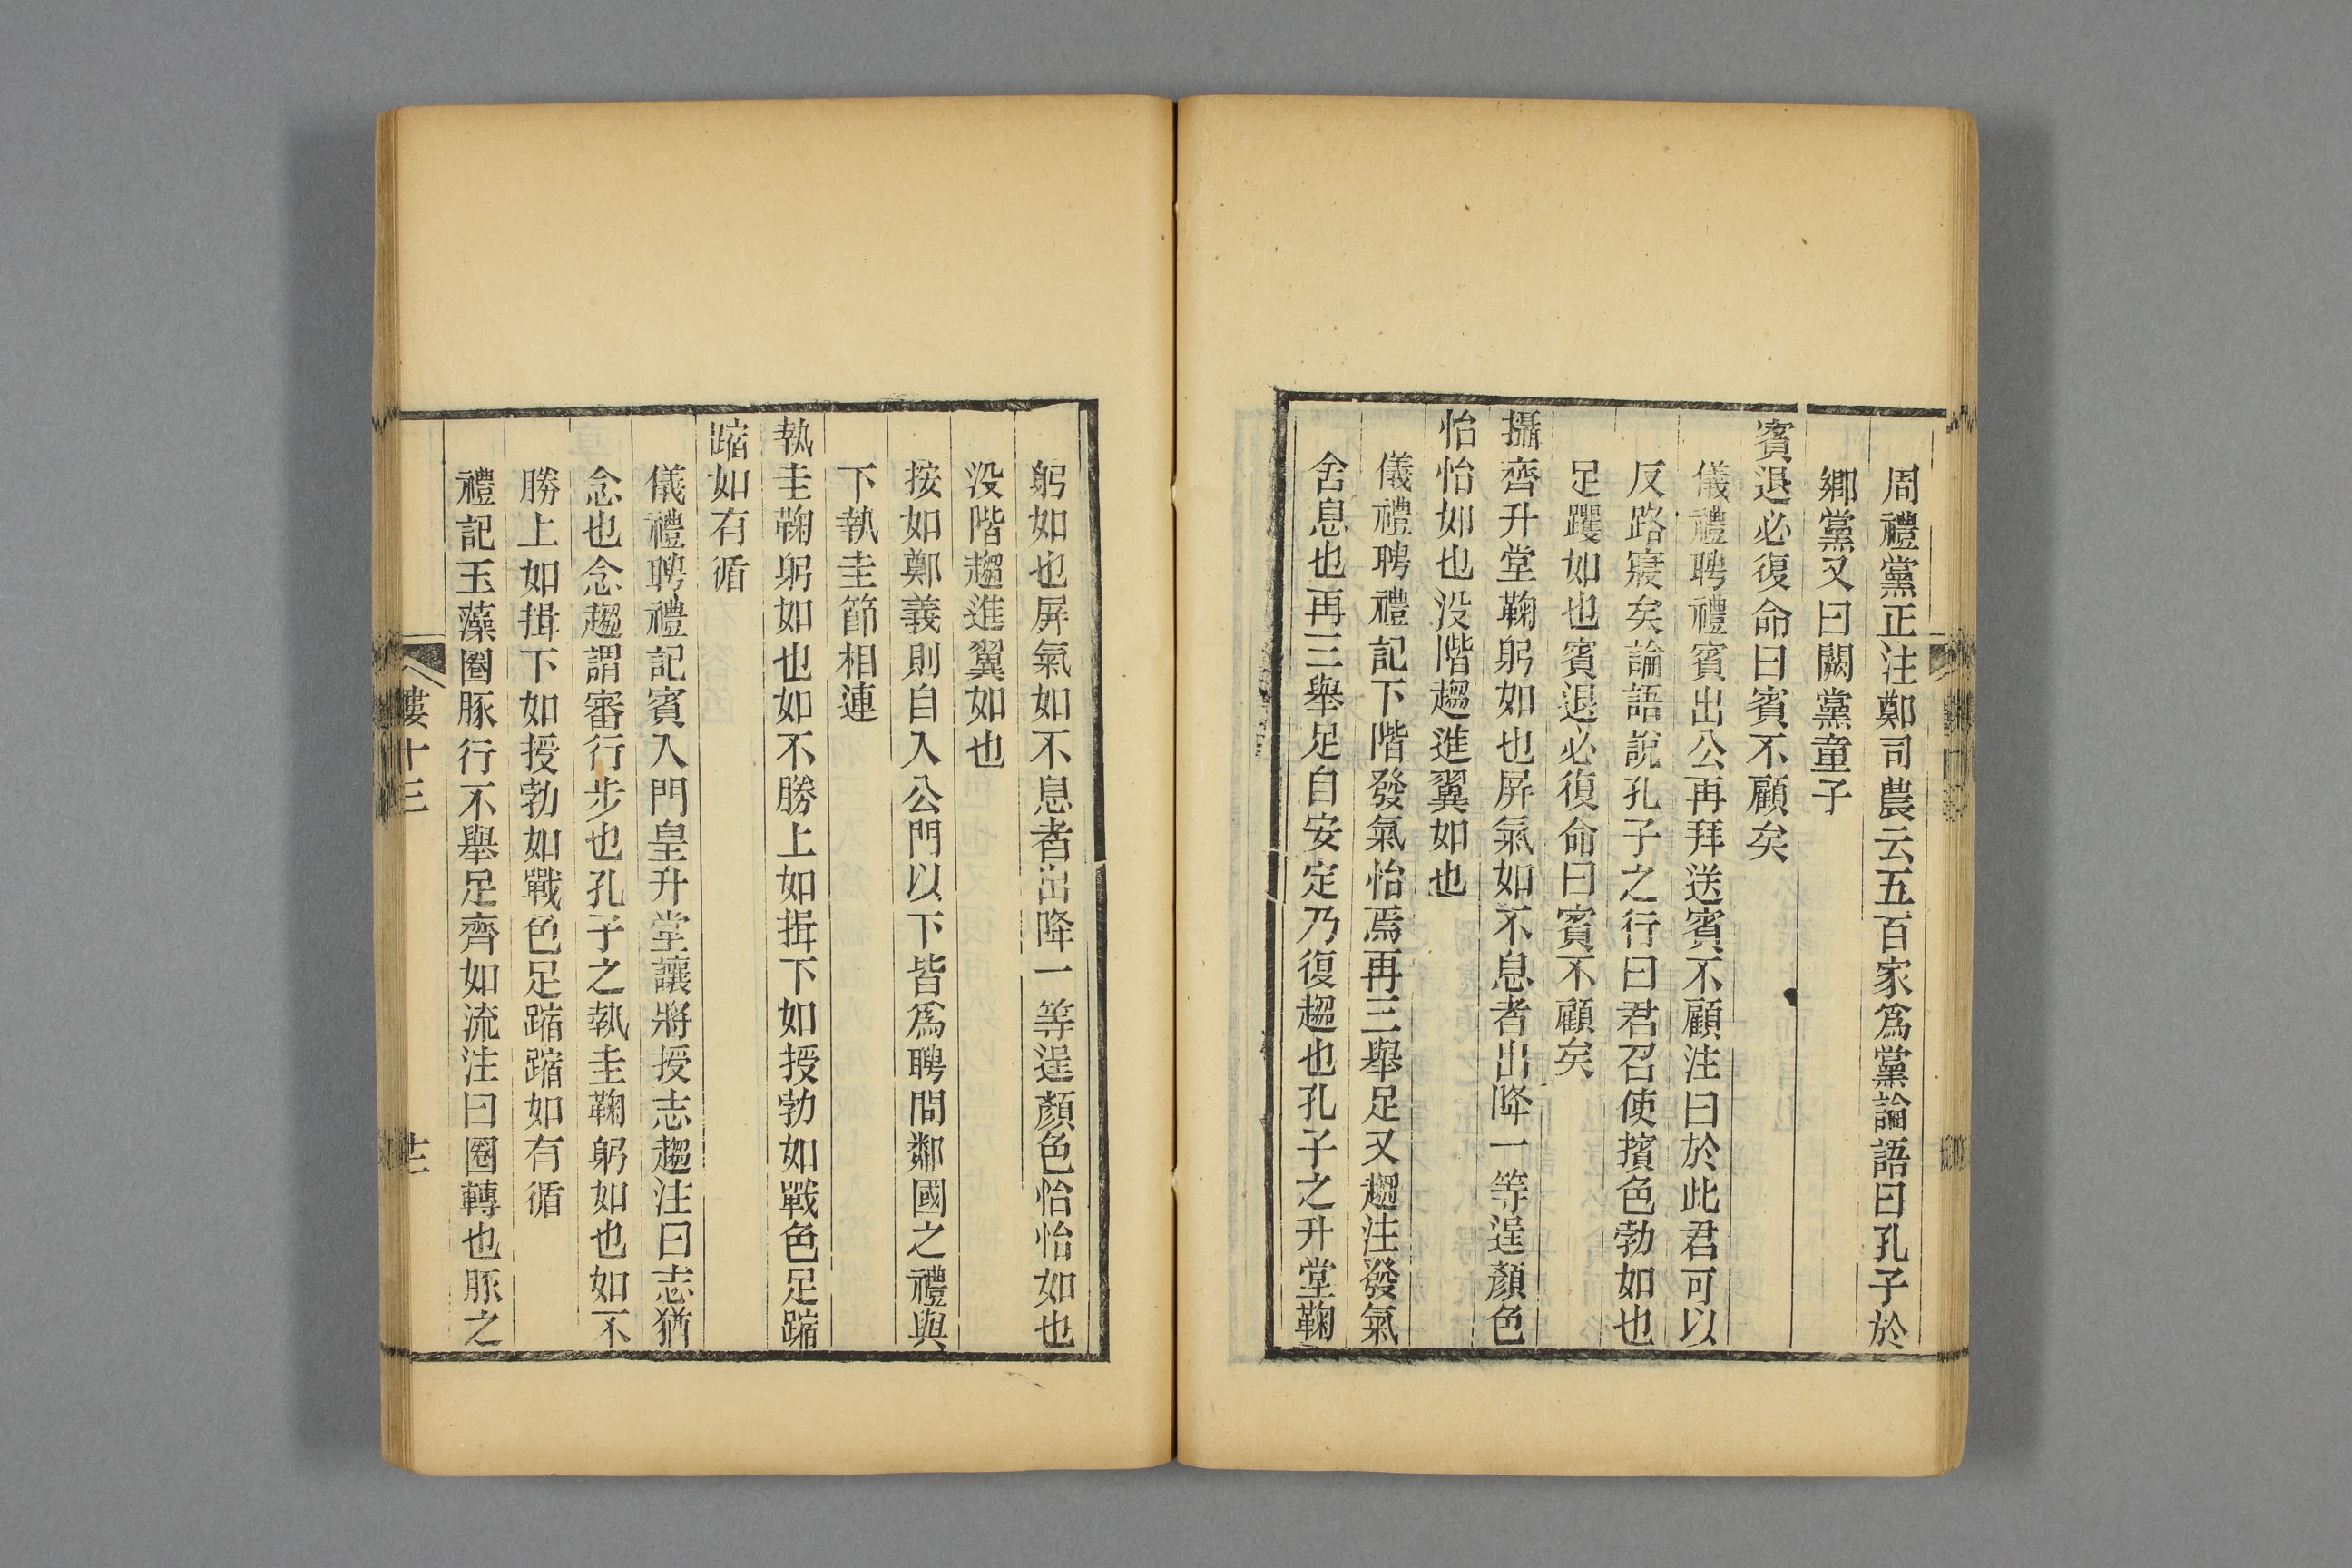 周禮黨正注鄭司農云五百家爲黨論語曰孔子於
鄉黨又曰闕黨童子
賓退必復命曰賓不顧矣
儀禮聘禮賓出公再拜送賓不顧注曰於此君可以
反路寢矣論語說孔子之行曰君召使擯色勃如也
足躩如也賓退必復命曰賓不顧矣
攝齊升堂鞠躬如也屏氣如不息者出降一等逞顏色
怡怡如也没階趨進翼如也
儀禮聘禮記下階發氣怡焉再三舉足又趨注發氣
舍息也再三舉足自安定乃復趨也孔子之升堂鞠
躬如也屏氣如不息者出降一等逞顏色怡怡如也
没階趨進翼如也
按如鄭義則自入公門以下皆爲聘問鄰國之禮與
下執圭節相連
執圭鞠躬如也如不勝上如揖下如授勃如戰色足蹜
蹜如有循
儀禮聘禮記賓入門皇升堂讓將授志趨注曰志猶
念也念趨謂審行步也孔子之執圭鞠躬如也如不
勝上如揖下如授勃如戰色足蹜蹜如有循
禮記玉藻圈豚行不舉足齊如流注曰圈轉也豚之
十三